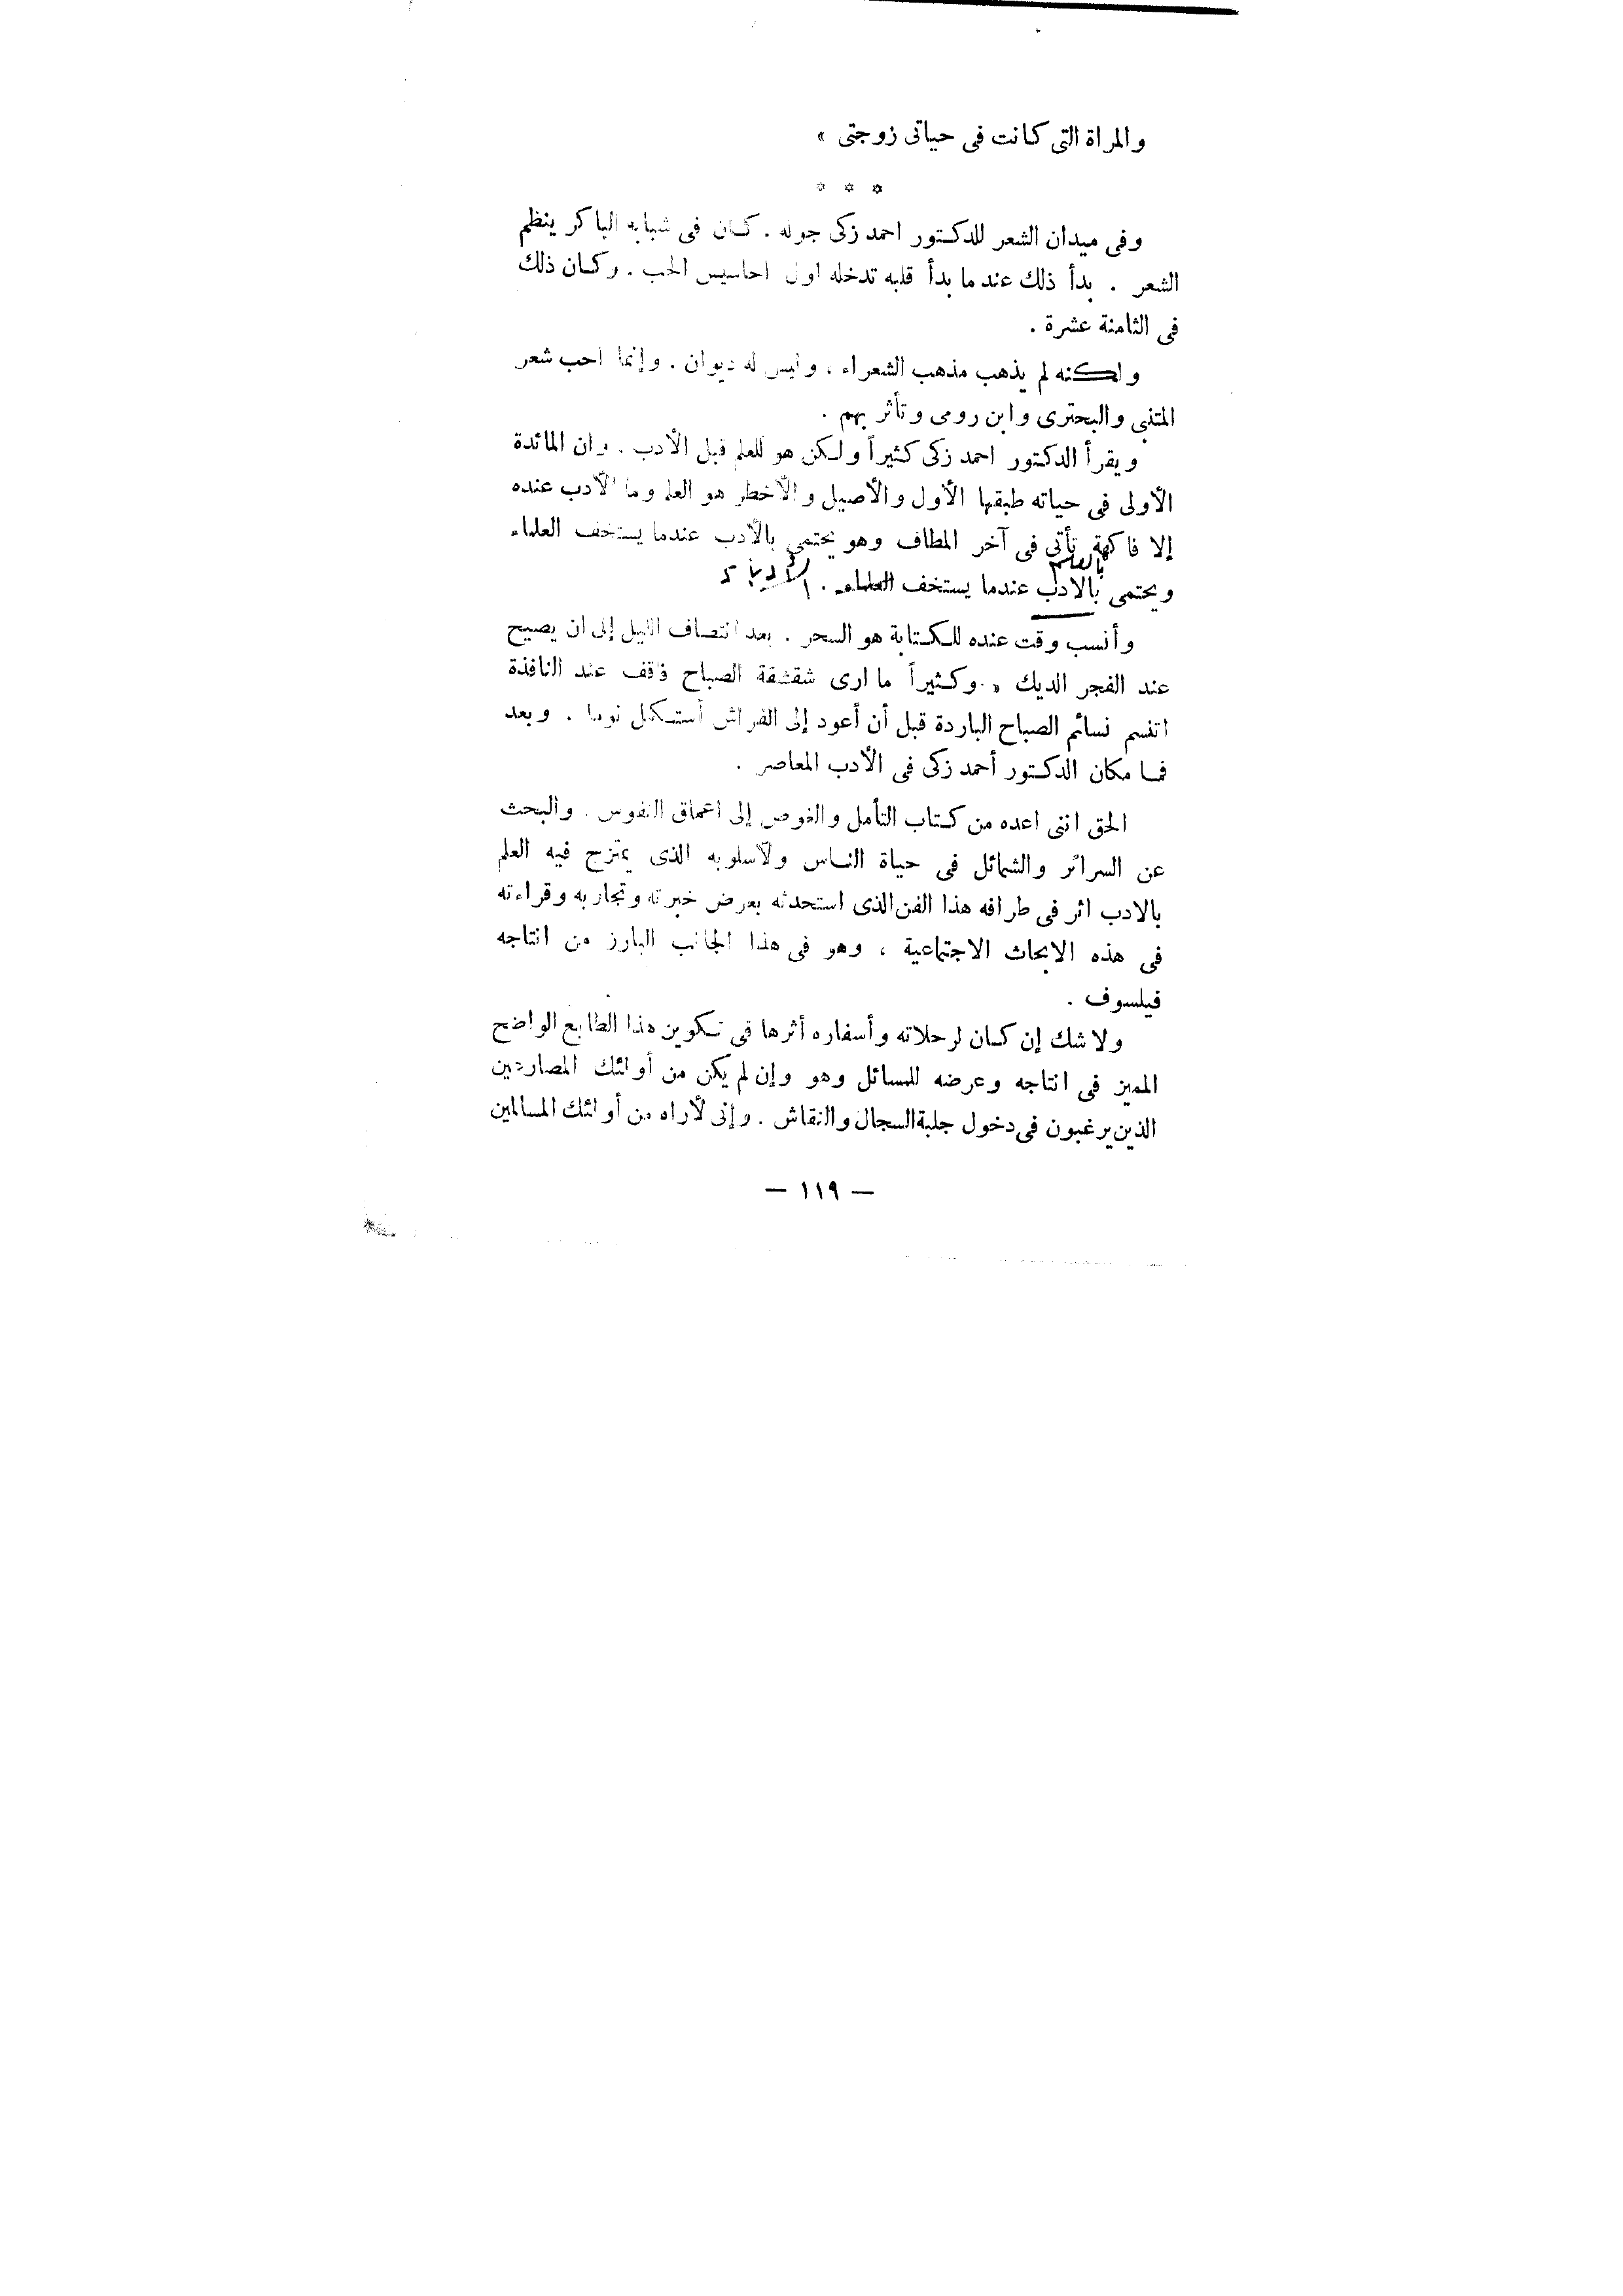 والمراة التى كانت فى حياتى زوجتى »
* * *
وفى ميدان الشعر للدكتور احمد زكى جوله . كان فى شبابه الباكر ينظم
الشعر . بدأ ذلك عند ما بدأ قلبه تدخله اول احاسيس الحب . وكان ذلك
فى الثامنة عشرة .
ولكنه لم يذهب مذهب الشعراء ، وليس له ديوان . وإنما احب شعر
المتنبى والبحترى وابن رومى وتأثر بهم .
ويقرأ الدكتور احمد زكى كثيراً ولكن هو للعلم قبل الأدب . وان المائدة
الأولى فى حياته طبقها الأول والأصيل والأخطر هو العلم وما الأدب عنده
إلا فاكهة تأتى فى آخر المطاف وهو يحتمى بالأدب عندما يستخف العلماء
بالعلم
ويحتمى بالادب عندما يستخف العلماء . الأدباء
وأنسب وقت عنده للكتابة هو السحر . بعد انتصاف الليل إلى ان يصيح
عند الفجر الديك « وكثيراً ما ارى شقشقة الصباح فاقف عند النافذة
اتنسم نسائم الصباح الباردة قبل أن أعود إلى الفراش أستكمل نوما . وبعد
فما مكان الدكتور أحمد زكى فى الأدب المعاصر .
الحق اننى اعده من كتاب التأمل والغوص إلى اعماق النفوس . والبحث
عن السرائر والشمائل فى حياة الناس ولأسلوبه الذى يمتزج فيه العلم
بالادب اثر فى طرافه هذا الفن الذى استحدثه بعرض خبرته وتجاربه وقراءته
فى هذه الابحاث الاجتماعية ، وهو فى هذا الجانب البارز من انتاجه
فيلسوف .
ولا شك إن كان لرحلاته وأسفاره أثرها فى تكوين هذا الطابع الواضح
المميز فى انتاجه وعرضه للمسائل وهو وإن لم يكن من أولئك المصارعين
الذين يرغبون فى دخول جلبة السجال والنقاش . وإنى لأراه من أولئك المسالمين
— ١١٩ —